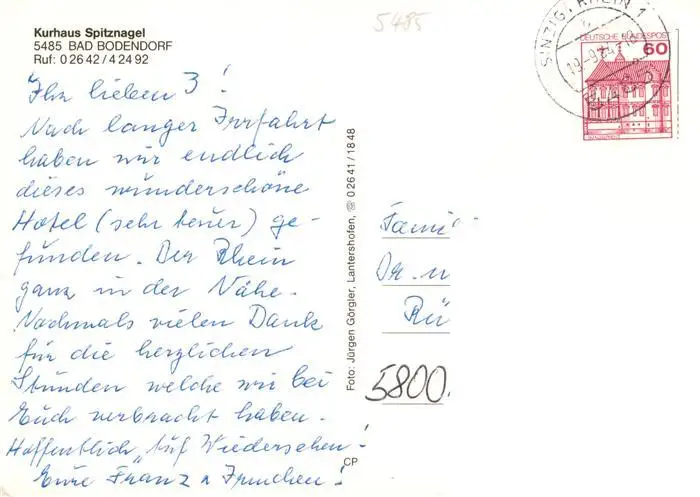 5485
Kurhaus Spitznagel
5485 BAD BODENDORF
Ruf: 0 26 42 / 4 24 92
SINZIG, RHEIN 1
DEUTSCHE BUNDESPOST
60
Ihr lieben 3!
Nach langer Irrfahrt
haben wir endlich
dieses wunderschöne
Hotel (sehr teuer) ge-
funden. Der Rhein
ganz in der Nähe.
Nochmals vielen Dank
für die herzlichen
Stunden welche wir bei
Euch verbracht haben.
Hoffentlich "Auf Wiedersehen!
Eure Franz u Irmchen!
Foto: Jürgen Görgler, Lantershofen, ☏ 0 26 41 / 18 48
CP
Fami
Dr. u
Rü
5800.